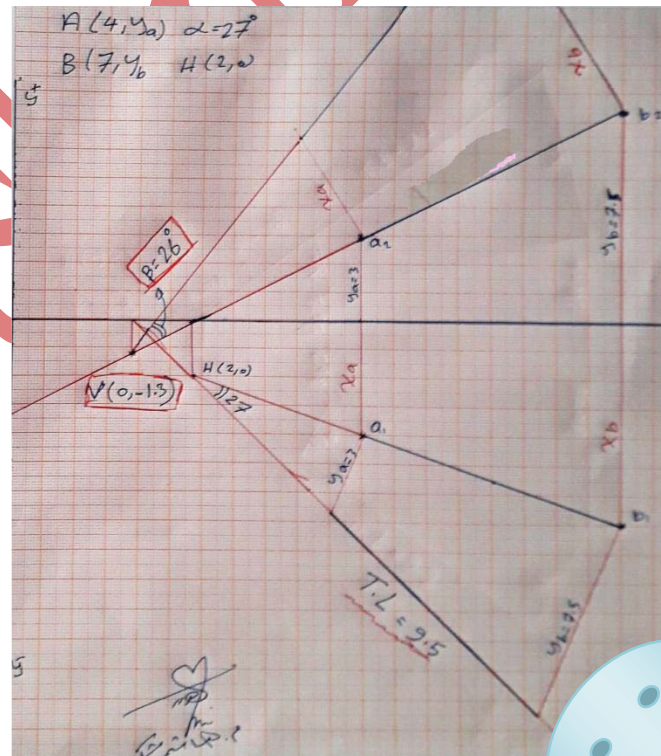 A(4,ya) α=27°
B(7,yb H(2,0)
xb
xa
yb=7.5
β=26°
a2
ya=3
H(2,0)
V(0,-1.3)
27
xa
a1
ya=3
xb
T.L = 9.5
yb=7.5